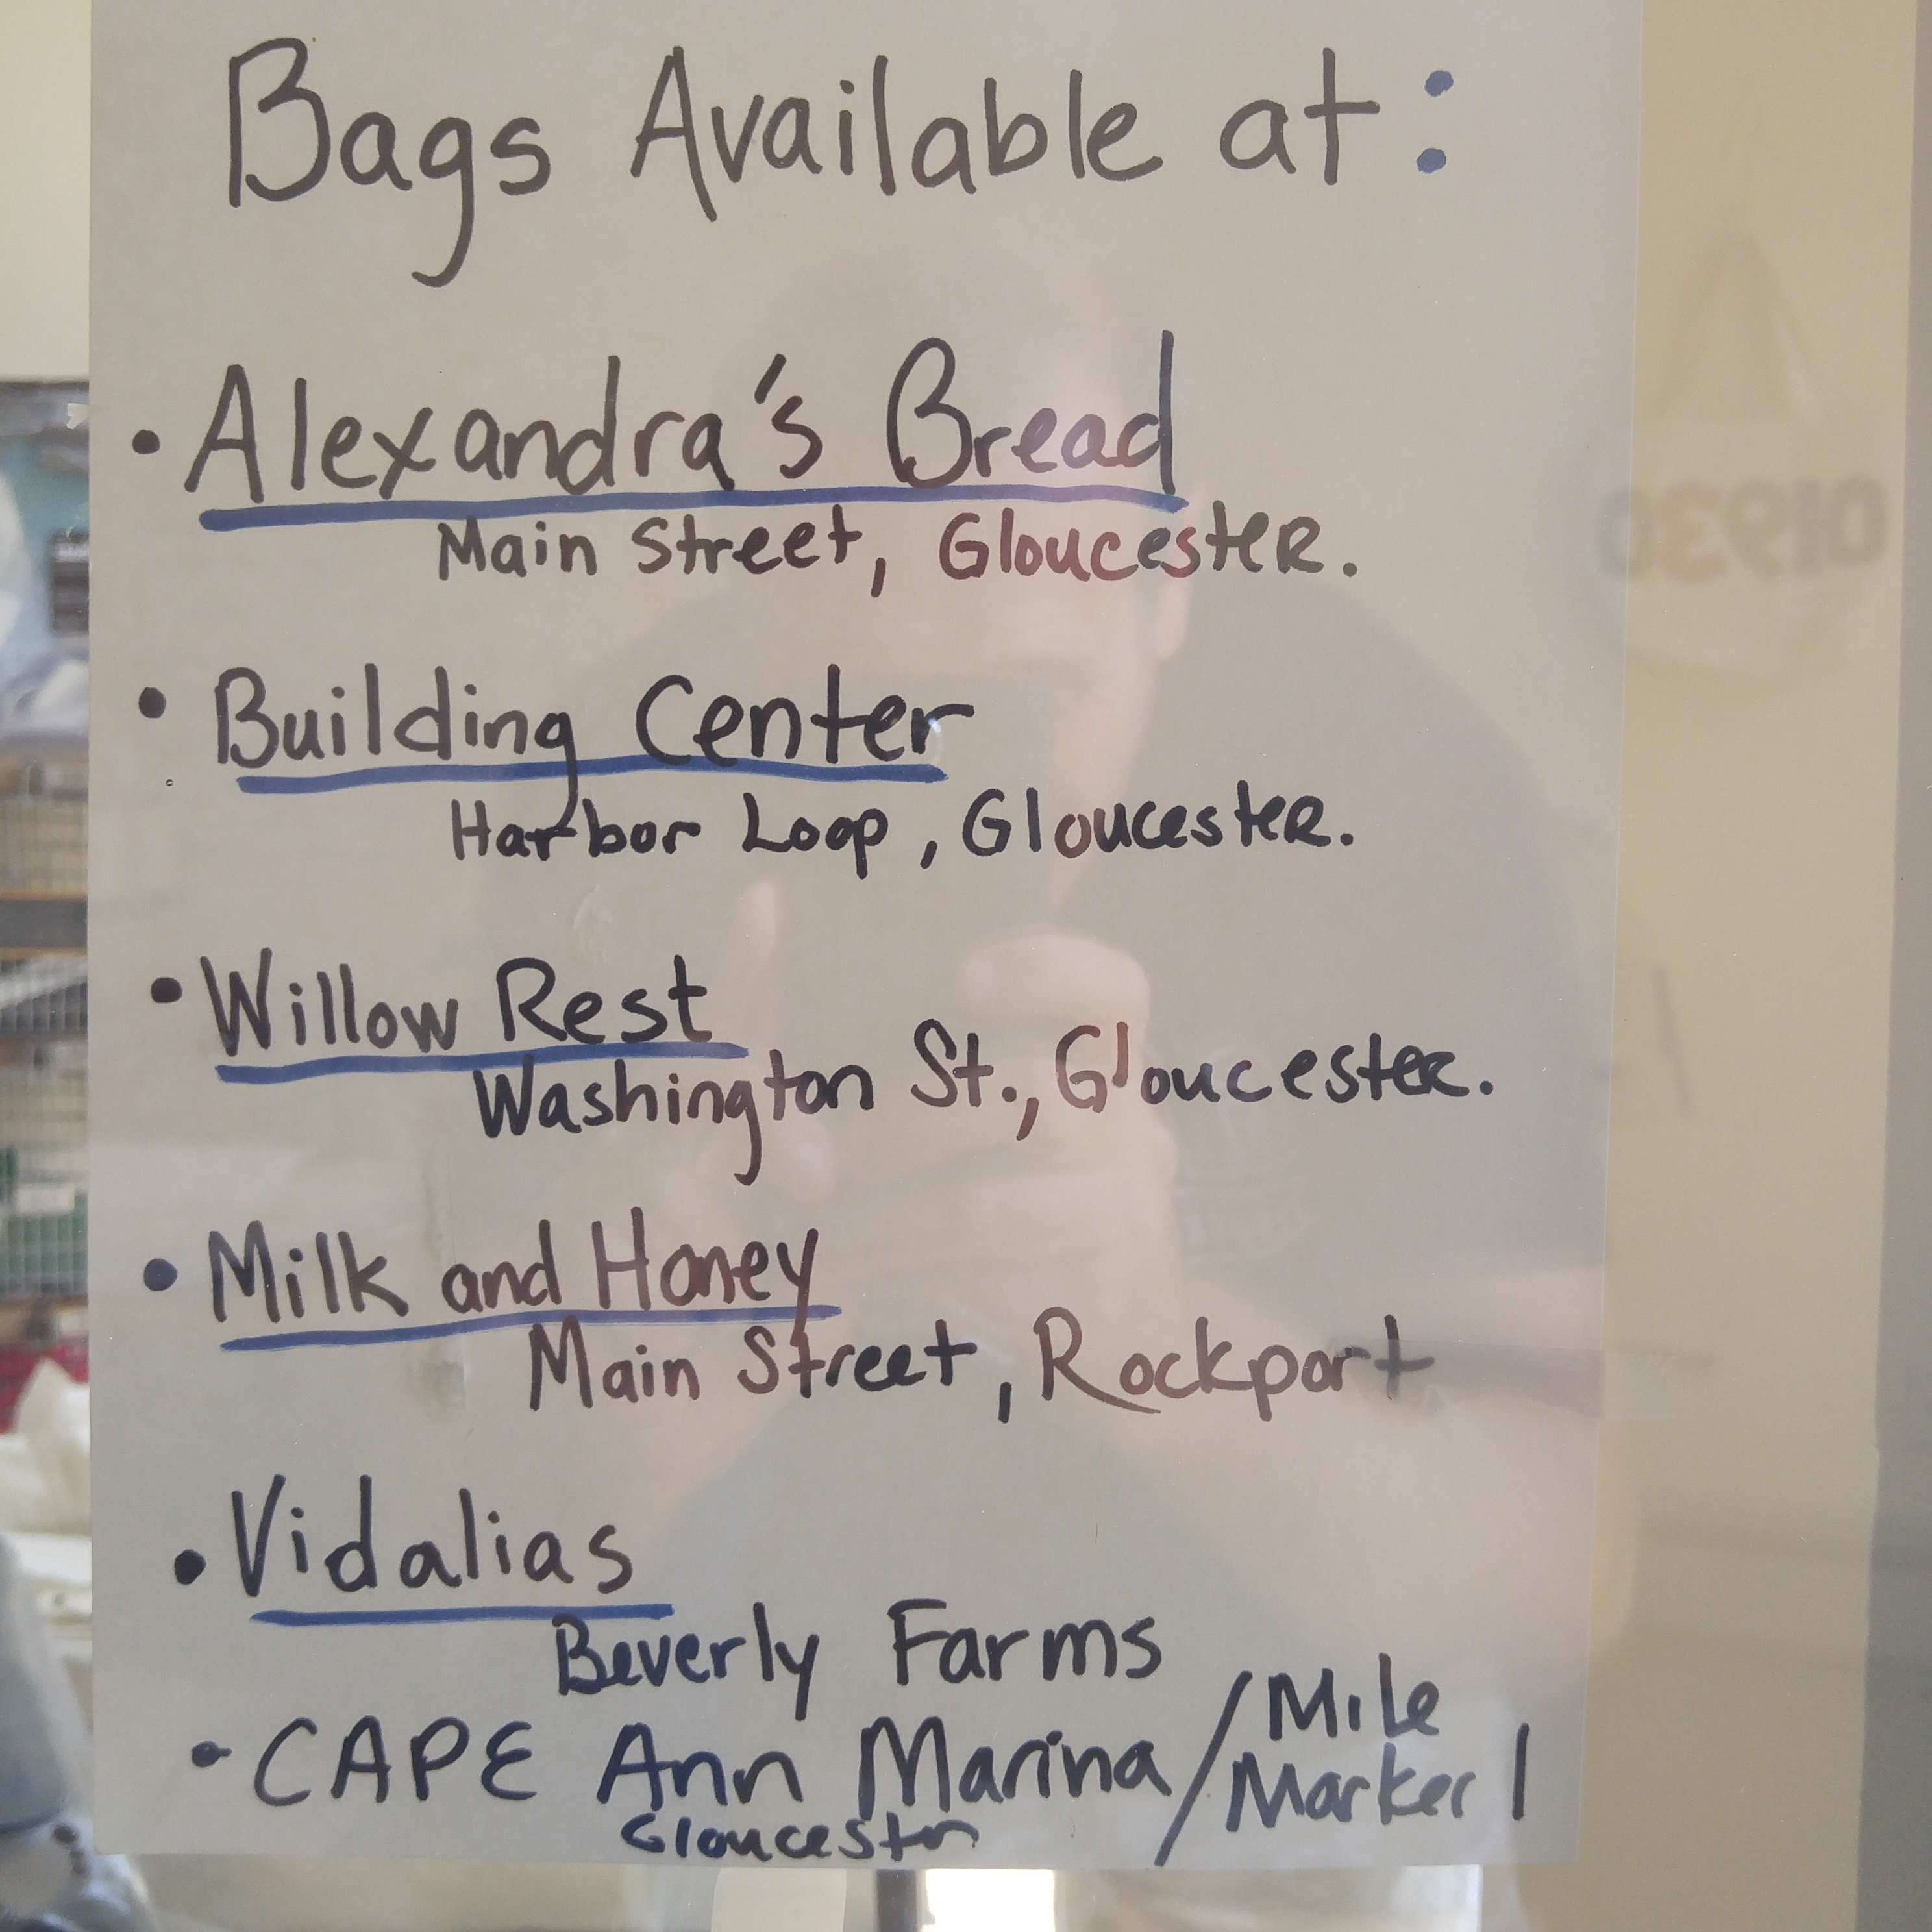 Bags Available at:
• Alexandra's Bread
Main Street, Gloucester.
• Building Center
Harbor Loop, Gloucester.
• Willow Rest
Washington St., Gloucester.
• Milk and Honey
Main Street, Rockport
• Vidalias
Beverly Farms
• CAPE Ann Marina/Mile Marker 1
Gloucester
01930